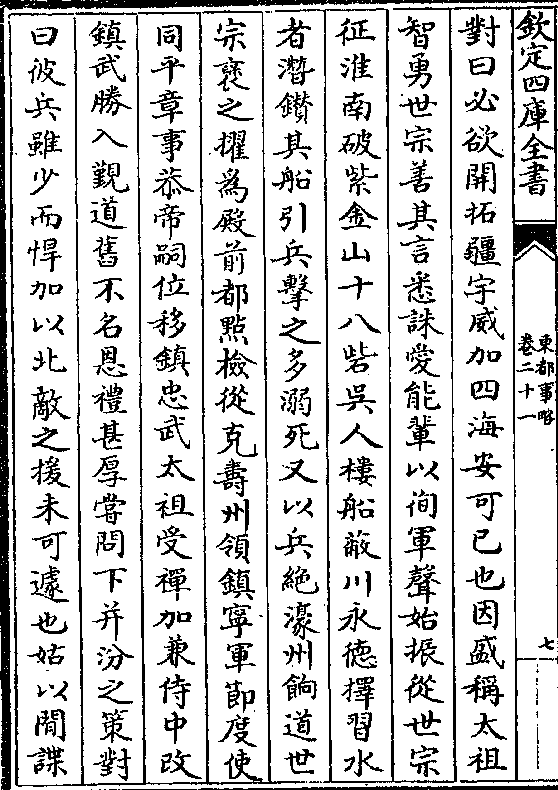 欽定四庫全書
東都事略
卷二十一
七
對曰必欲開拓疆宇威加四海安可已也因盛稱太祖
智勇世宗善其言悉誅愛能輩以徇軍聲始振從世宗
征淮南破紫金山十八砦吳人樓船蔽川永德擇習水
者潛鑚其船引兵擊之多溺死又以兵絶濠州餉道世
宗褒之擢爲殿前都㸃檢從克壽州領鎮寧軍節度使
同平章事恭帝嗣位移鎮忠武太祖受禪加兼侍中改
鎮武勝入覲道舊不名恩禮甚厚嘗問下并汾之策對
曰彼兵雖少而悍加以北敵之援未可遽也姑以間諜